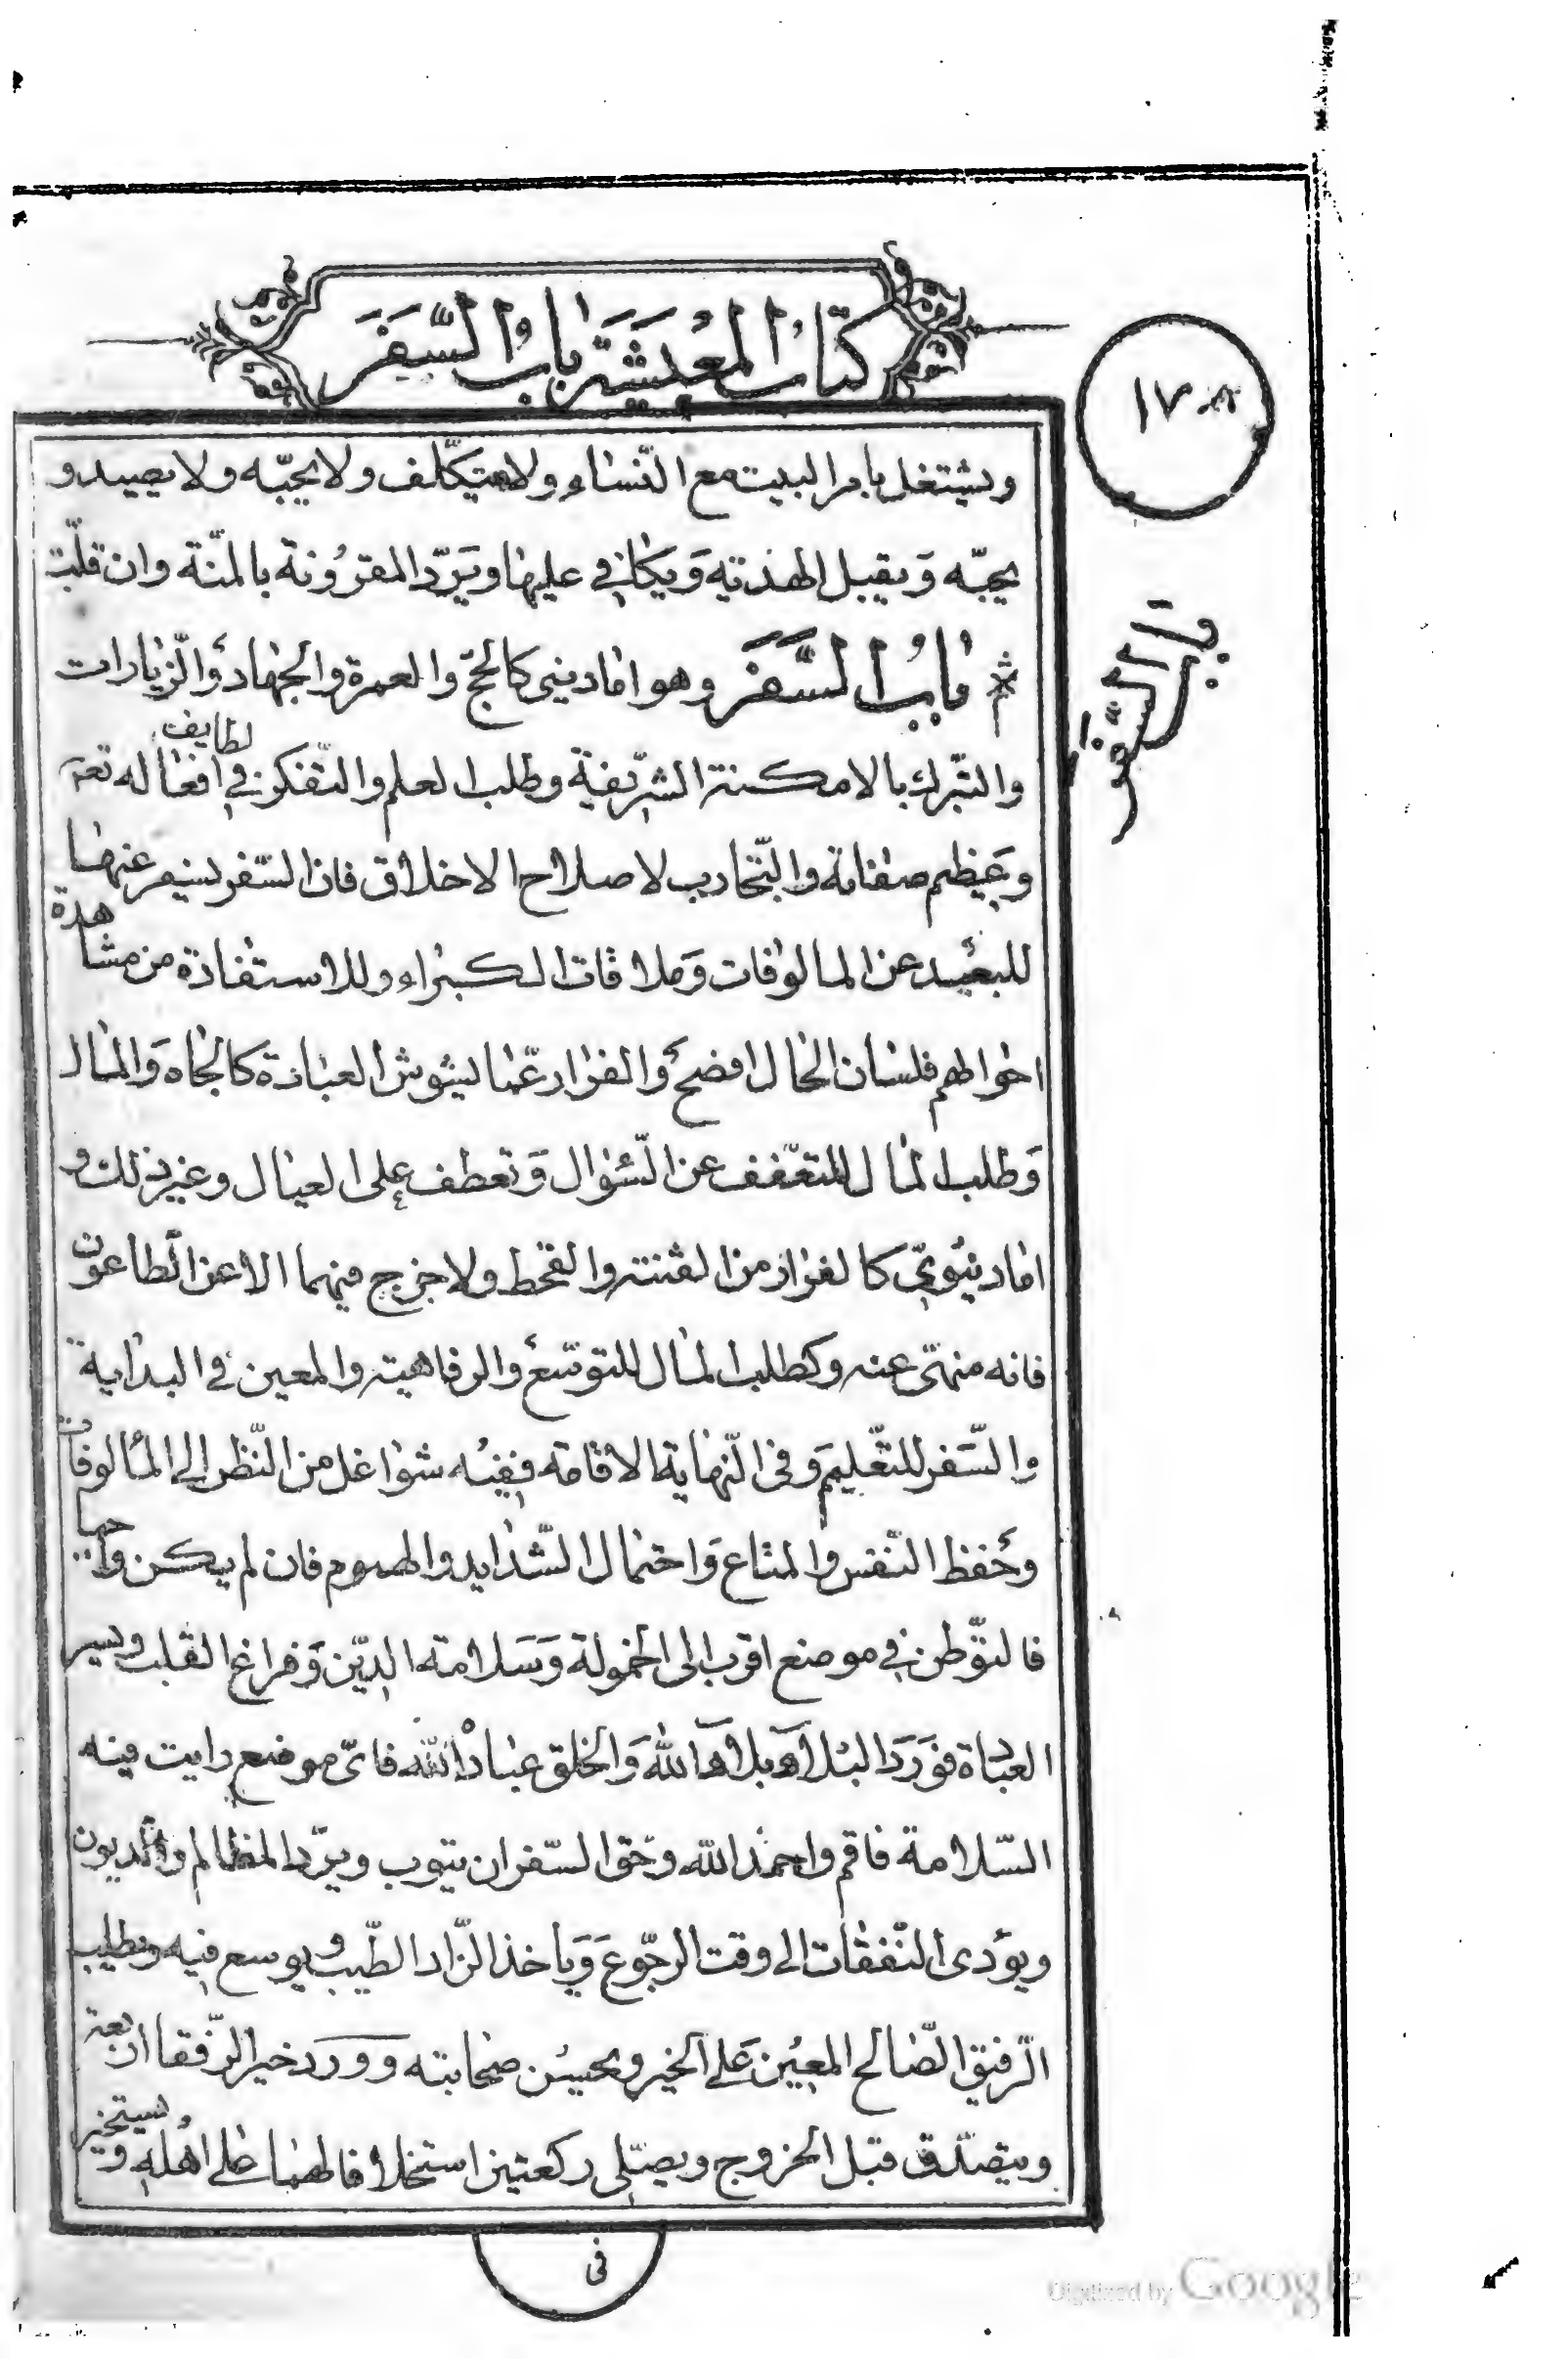 كتاب المعيشة باب السفر
١٧٨
ويشتغل بامر البيت مع النساء ولا يتكلف ولا يحبه ولا يصيد و
يحبه ويقبل الهدية ويكافي عليها ويرد المقرونة بالمنة وان قلت
باب السفر وهو اما ديني كالحج والعمرة والجهاد والزيارات
باب السفر
لطايف
والتبرك بالامكنة الشريفة وطلب العلم والتفكر في افعاله تعم
وعظيم صفاته والتجارب لاصلاح الاخلاق فان السفر يسفر عنها
للبعيد عن المالوفات وملاقات الكبراء وللاستفادة من مشاهدة
احوالهم فلسان الحال افصح والفرار عما يشوش العبادة كالجاه والمال
وطلب المال للتعفف عن السؤال وتعطف على العيال وغير ذلك و
اما دنيوي كالفرار من الفتنة والقحط ولا حرج فيهما الا عن الطاعون
فانه منهى عنه وكطلب المال للتوسع والرفاهية والمعين في البداية
والسفر للتعليم وفى النهاية الاقامة ففيه شواغل من النظر الى المألوفات
وحفظ النفس والمتاع واحتمال الشدايد والهموم فان لم يكن واجبا
فالتوطن في موضع اقرب الى الخمولة وسلامة الدين وفراغ القلب ويسير
العبادة فورد البلاد بلاد الله والخلق عباد الله فاى موضع رايت فيه
السلامة فاقم واحمد الله وحق السفر ان يتوب ويرد المظالم والديون
ويؤدى النفقات الى وقت الرجوع وياخذ الزاد الطيب ويوسع فيه ويطلب
الرفيق الصالح المعين على الخير ويحسن صحابته وورد خير الرفقا اربعة
ويتصدق قبل الخروج ويصلى ركعتين استخلافا لهما على اهله ويستخير
فى
Digitized by Google